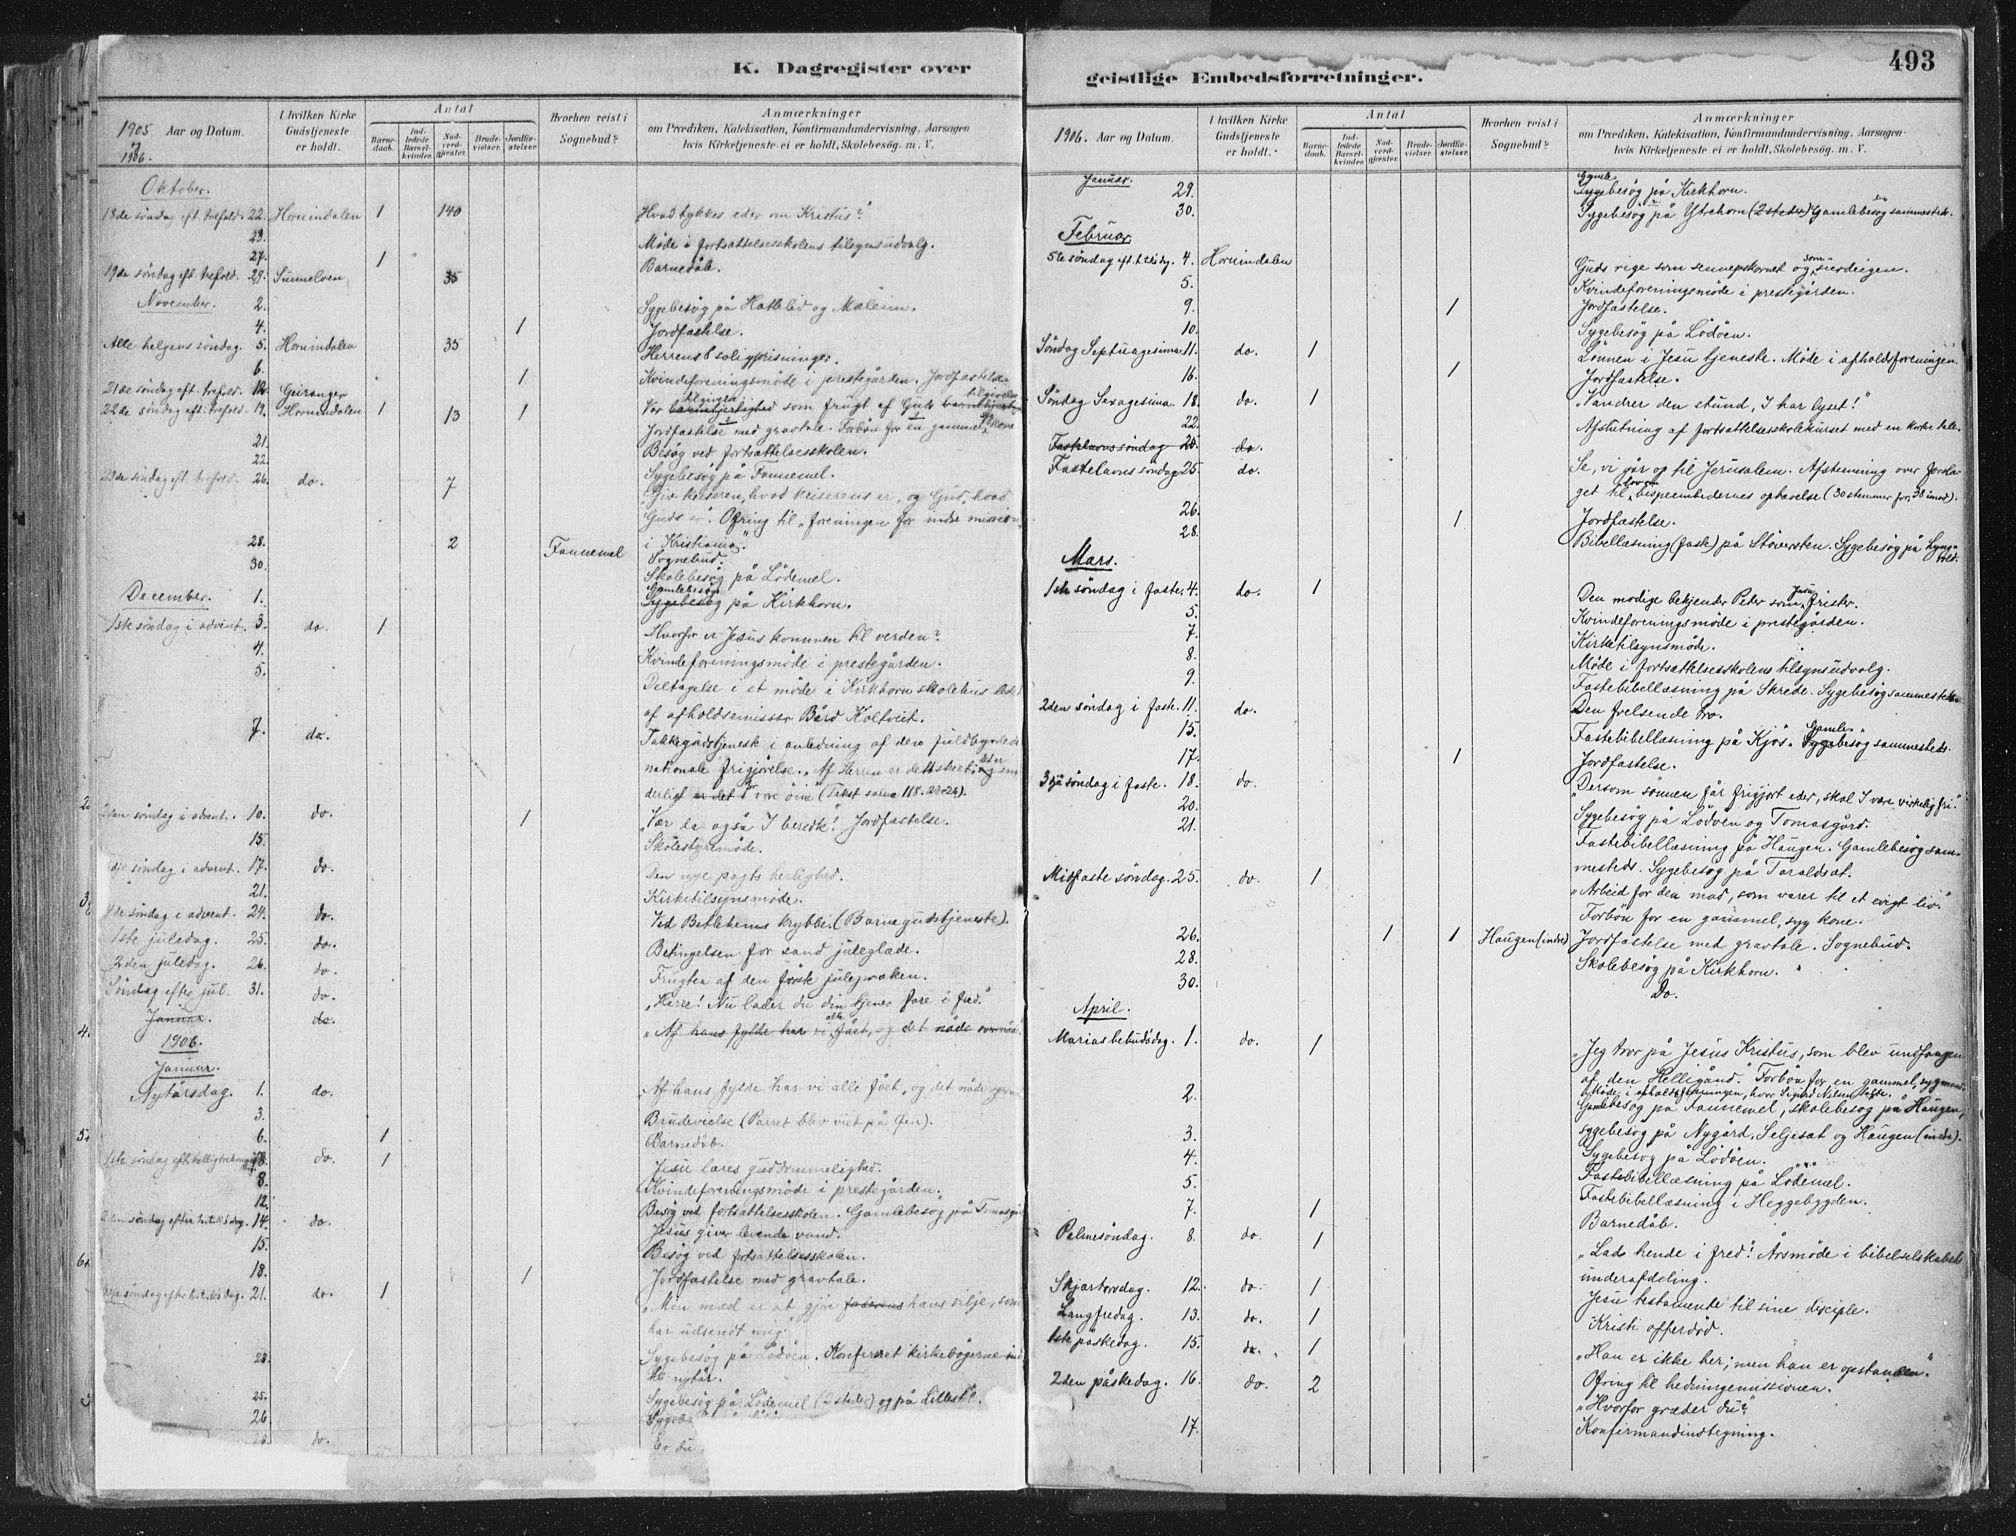 K. Dagregister over
1905 Aar og Datum.
1906.
I hvilken Kirke Gudstjeneste er holdt.
Antal
Barnedaab.
Indledede Barselkvinder.
Nadverdgjester.
Brudevielser.
Jordfæstelser.
Hvorhen reist i Sognebud?
Anmærkninger
om Prædiken, Katekisation, Konfirmandundervisning, Aarsagen
hvis Kirketjeneste ei er holdt, Skolebesøg m. V.
Oktober.
18de söndag eft. trefold. 22. Hornindalen 1 140 Hvad tykkes eder om Kristus?
23. Möde i fortsættelsesskolens tilsynsudvalg.
27. 1 Barnedåb.
19de söndag eft. trefold. 29. Sunnelven 35
November. 2. Sygebesög på Hattelid og Maleim.
4. 1 Jordfæstelse.
Alle helgens söndag. 5. Hornindalen 35 Herrens 8 saligprisninger.
6. 1 Kvindeforeningsmöde i prestegården. Jordfæstelse
21de söndag eft. trefold. 12. Geiranger
22de söndag eft. trefold. 19. Hornindalen 1 13 1 Vor barmhjertighed tilgiven som frugt af Guds tilgivelse
Jordfæstelse med gravtale. Forbön for en gammel syg kone
21. Besög ved fortsættelsesskolen.
22. Sygebesög på Fannemel.
23de söndag eft. trefold. 26. do. 7 "Giv keiseren, hvad keiserens er, og Gud, hvad
Guds er". Ofring til "foreningen for indre mission
i Kristiania".
28. 2 Fannemel Sognebud.
30. Skolebesög på Lödemel.
December. 1. Sygebesög Gamlebesög på Kirkhorn.
1ste söndag i advent. 3. do. 1 Hvorfor er Jesus kommen til verden?
4. Kvindeforeningsmöde i prestegården.
5. Deltagelse i et möde i Kirkhorn skolehus
af afholdsemissær Bård Kolltveit.
7. do. Takkegudstjeneste i anledning af den fuldbyrdede
nationale frigjörelse. "Af Herren er dette skeet; det er og un-
derligt er det for vore öine" (Tekst salme 118. 23-24).
2den söndag i advent. 10. do. 1 "Vær da også I beredte"! Jordfæstelse.
15. Skolestyremöde.
3dje söndag i advent. 17. do. Den nye pagts herlighed.
21. Kirketilsynsmöde.
4de söndag i advent. 24. do. Ved Betlehems krybbe. (Barnegudstjeneste).
1ste juledag. 25. do. Betingelsen for sand juleglæde.
2den juledag. 26. do. Frugten af den förste juleprækem.
Söndag efter jul. 31. do. "Herre! Nu lader du din tjener fare i fred."
Januar. do. "Af hans fylde har vi alle fået, og det nåde over nåde
1906.
Januar.
Nytårsdag. 1. do. "Af hans fylde har vi alle fået, og det nåde over
3. Brudevielse (Parret blev viet på Gjen).
6. 1 Barnedåb.
1ste söndag eft. helligtrekonger 7. do. 1 Jesu læres guddommelighed.
8. Kvindeforeningsmöde i prestegården.
12. Besög ved fortsættelsesskolen. Gamlebesög på Tomasgård
2den söndag efter h. t. k. dag. 14. do. Jesus giver levende vand.
15. Besög ved fortsættelsesskolen.
18. 1 Jordfæstelse med gravtale.
3dje söndag efter h. t. k. dag. 21. do. 1 "Min mad er at gjöre faderens hans vilje, som
har udsendt mig"
23. Sygebesög på Lödöen. Konfereret kirkebögerne ind
til nytår.
25. Sygebesög på Lödemel (2 steder) og på Lillestöl.
26 Sygeb
28. do. Er du
geistlige Embedsforretninger.
493
1906. Aar og Datum.
I hvilken Kirke Gudstjeneste er holdt.
Antal
Barnedaab.
Indledede Barselkvinder.
Nadverdgjester.
Brudevielser.
Jordfæstelser.
Hvorhen reist i Sognebud?
Anmærkninger
om Prædiken, Katekisation, Konfirmandundervisning, Aarsagen
hvis Kirketjeneste ei er holdt, Skolebesøg m. V.
Januar. 29. Sygebesög Gamle på Kirkhorn.
30. Sygebesög på Ytrehorn (2 steder) Gamlebesög sammesteds.
Februar.
5te söndag eft. h. t. k. dg. 4. Hornindalen Guds rige som sennepskornet og som surdeigen.
5. Kvindeforeningsmöde i prestegården.
9. 1 Jordfæstelse.
10. Sygebesög på Lödöen.
Söndag Septuagesima 11. do. 1 Lönnen i Jesu tjeneste. Möde i afholdsforeningen.
16. 1 Jordfæstelse.
Söndag Sexagesima. 18. do. 1 "Vandrer den stund, I har lyset!"
22. Afslutning af fortsættelsesskolekurset med en kortere tale.
Fastelavnssöndag 25. do.
Fastelavnssöndag 25. do. Se, vi går op til Jerusalem. Afstemning over forsla-
get til lov om bispeembedernes ophævelse (30 stemmer for, 38 imod).
26. 1 Jordfæstelse.
28. Bibellæsning (faste) på Stöversten. Sygebesög på Lyngvold.
Mars.
1ste söndag i faste. 4. do. 1 Den modige bekjender Peter som Jesu frister.
5. Kvindeforeningsmöde i prestegården.
7. Kirketilsynsmöde.
8. Möde i fortsættelsesskolens tilsynsudvalg.
9. Fastebibellæsning på Skrede. Sygebesög sammesteds.
2den söndag i faste. 11. do. Den frelsende tro.
15. Fastebibellæsning på Kjös. Gamle- Sygebesög sammesteds.
17. 1 Jordfæstelse.
3dje söndag i faste. 18. do. "Dersom sönnen får frigjort eder, skal I være virkelig fri".
20. Sygebesög på Lödöen og Tomasgård.
21. Fastebibellæsning på Haugen. Gamlebesög sam-
mesteds. Sygebesög på Taraldset.
Midfaste söndag. 25. do. 1 "Arbeid for den mad, som varer til et evigt liv".
Forbön for en gammel, syg kone.
26. 1 1 Haugen (indre) Jordfæstelse med gravtale. Sognebud.
28. Skolebesög på Kirkhorn.
30. Do.
April.
Marias bebudsdag. 1. do. 1 "Jeg tror på Jesus Kristus, som blev undfangen
af den Helligånd." Forbön for en gammel, syg mand.
Möde i afholdsforeningen, hvor Sigurd Nilsen talte.
2. Gamlebesög på Fannemel, skolebesög på Haugen,
3. sygebesög på Nygård, Seljeset og Haugen (indre).
4. Sygebesög på Lödöen.
5. Fastebibellæsning på Lödemel.
Fastebibellæsning i Heggebygden.
7. 1 Barnedåb.
Palmesöndag. 8. do. 1 "Lads hende i fred"! Årsmöde i bibelselskabets
underafdeling.
Skjærtorsdag. 12. do. 1 Jesu testamente til sine disciple.
Langfredag. 13. do. 1 Kristi offerdöd.
1ste påskedag. 15. do. 1 "Han er ikke her; men han er opstanden"
Ofring til hedningemissionen.
2den påskedag. 16. do. 2 "Hvorfor græder du?"
17. Konfirmandindtegning.